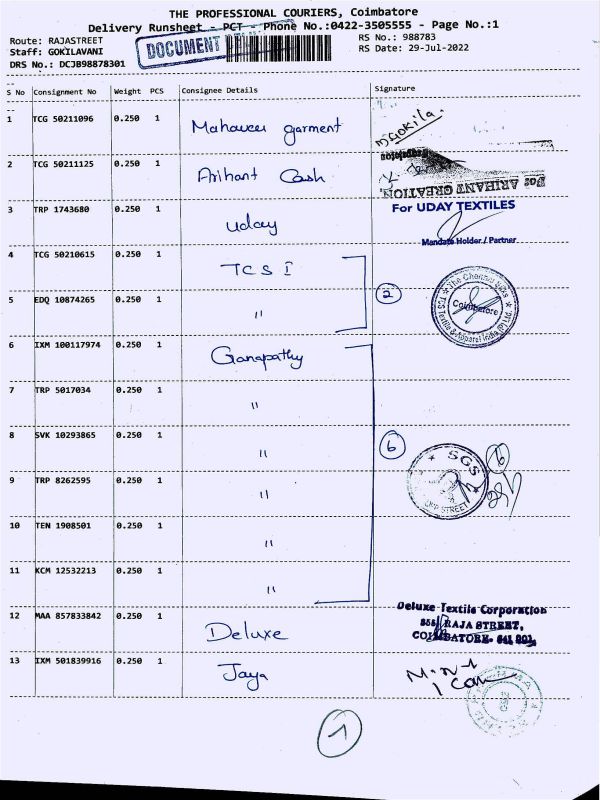 THE PROFESSIONAL COURIERS, Coimbatore
Delivery Runsheet - PCT - Phone No.:0422-3505555 - Page No.:1
Route: RAJASTREET DOCUMENT RS No.: 988783
Staff: GOKILAVANI RS Date: 29-Jul-2022
DRS No.: DCJB98878301
S No Consignment No Weight PCS Consignee Details Signature
1 TCG 50211096 0.250 1 Mahaveer garment Gokila
2 TCG 50211125 0.250 1 Arihant Cash For ARIHANT CREATION,
3 TRP 1743680 0.250 1 uday For UDAY TEXTILES
Mandate Holder / Partner
4 TCG 50210615 0.250 1 TCS I
5 EDQ 10874265 0.250 1 " 2 The Chennai Silks Coimbatore TCS Textile & Apparel India (P) Ltd.
6 IXM 100117974 0.250 1 Ganapathy
7 TRP 5017034 0.250 1 "
8 SVK 10293865 0.250 1 " 6 SGS 6
9 TRP 8262595 0.250 1 " STREET
10 TEN 1908501 0.250 1 "
11 KCM 12532213 0.250 1 "
12 MAA 857833842 0.250 1 Deluxe Deluxe Textile Corporation
RAJA STREET,
COIMBATORE- 641 001.
13 IXM 501839916 0.250 1 Jaya
1